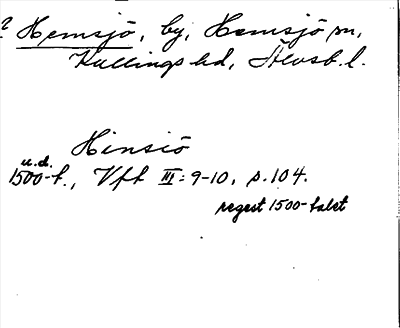 ? Hemsjö, by, Hemsjö sn,
Kullings hd, Älvsb. l.
Hinsiö
u.d.
1500-t., Vft III: 9-10, p. 104.
regest 1500-talet